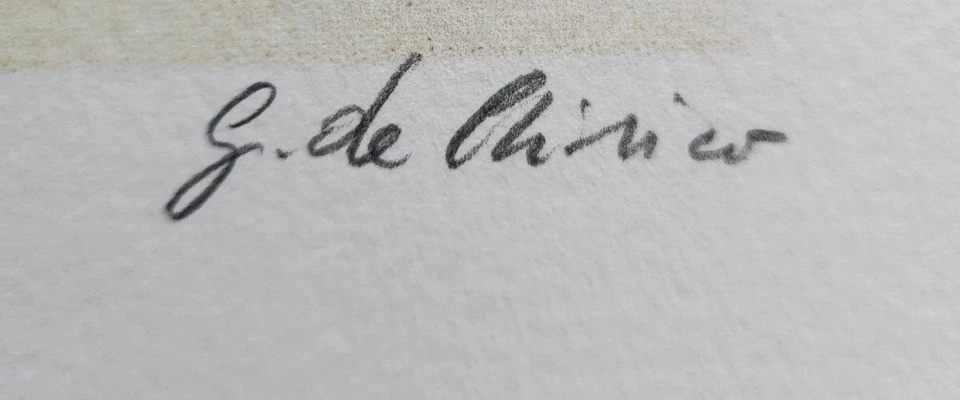 G. de Chirico